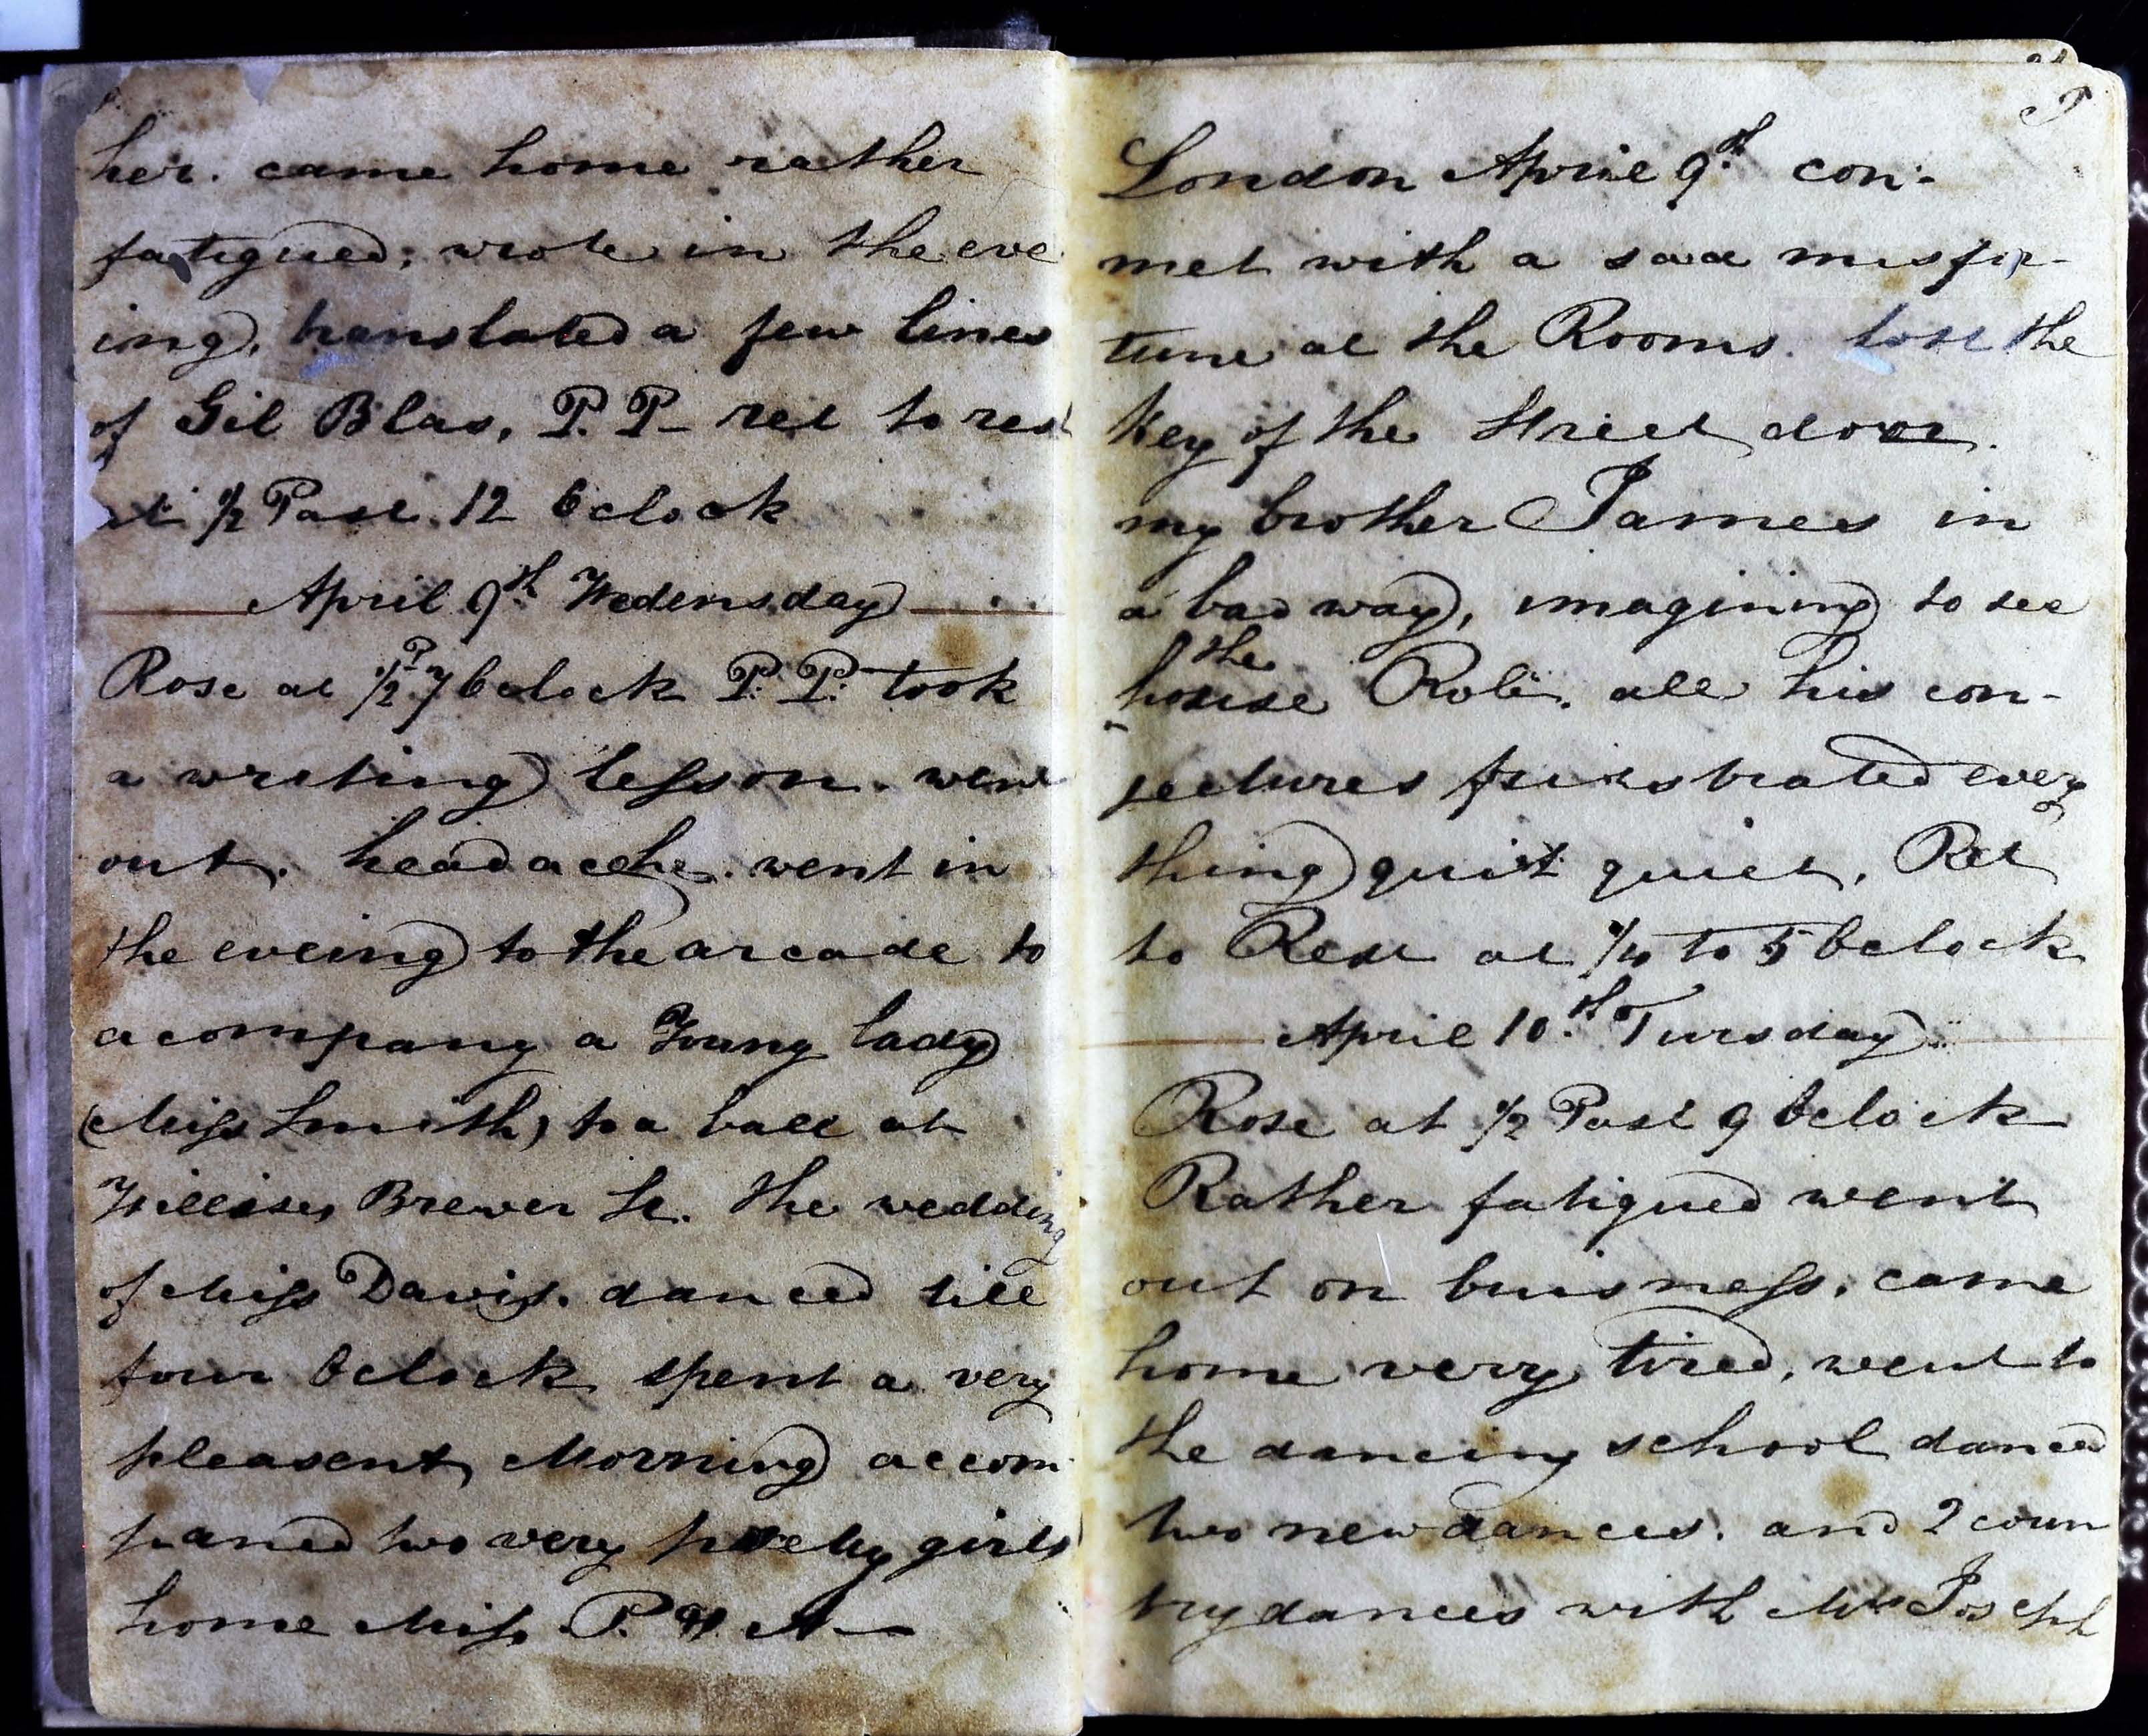 her. came home rather
fatigued; wrote in the eve
ing, translated a few lines
of Gil Blas, P. P- ret to rest
at 1/2 Past 12 Oclock
April 9th Wedensday
Rose at 1/2 P 7 Oclock P. P. took
a writing lesson. went
out. headacche. went in
the eveing to the arcade to
acompany a Young lady
(Miss Smith) to a ball at
Willises, Brewer St. the wedding
of Miss Davis. danced till
four Oclock spent a very
pleasent Morning accom
paned two very pretty girls
home Miss P. & A—
London April 9th con-
met with a sad misfor-
tune at the Rooms. lost the
key of the Street door.
my brother James in
a bad way, imagining to see
the
house Rob. all his con-
jectures frustrated every
thing quit quiet, Ret
to Rest at 1/4 to 5 Oclock
April 10th Tursday
Rose at 1/2 Past 9 Oclock
Rather fatigued went
out on buisness. came
home very tired, went to
the dancing school danced
two new dances. and 2 coun
try dances with Miss Joseph